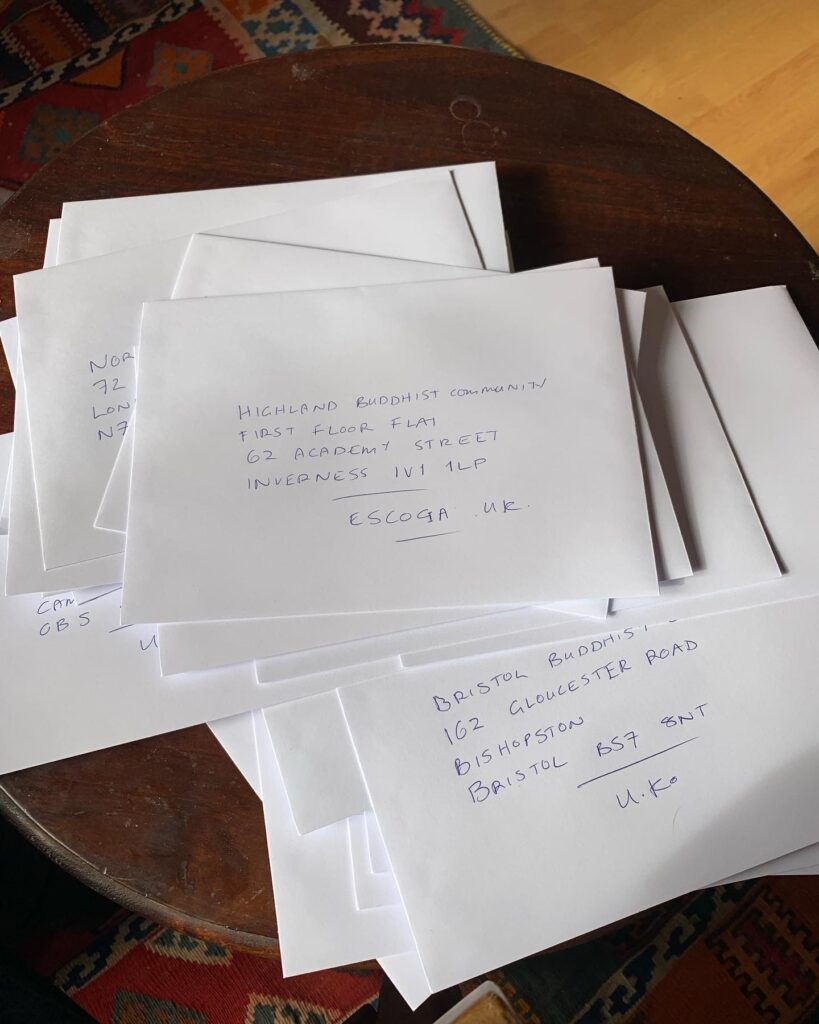 HIGHLAND BUDDHIST COMMUNITY
FIRST FLOOR FLAT
62 ACADEMY STREET
INVERNESS IV1 1LP
ESCOGA UK.
NOR
72
LON
N7
CAM
CB5
U
BRISTOL BUDDHIST
162 GLOUCESTER ROAD
BISHOPSTON
BRISTOL BS7 8NT
U.K.